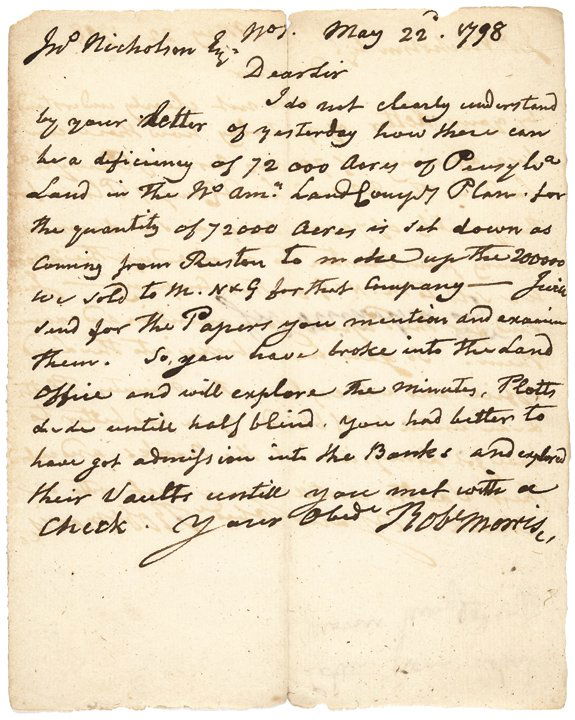 Jno Nicholson Esqr No 1. May 22d. 1798
Dear sir
I do not clearly understand
by your letter of yesterday how there can
be a deficiency of 72 000 Acres of Pensylva
Land in the No Amn Land Compy Plan. for
the quantity of 72 000 Acres is set down as
coming from Ruston to make up the 200000
we sold to M. N & G for that Company — I will
send for the Papers you mention and examine
them. So, you have broke into the Land
Office and will explore the minutes, Plotts
&c &c untill half blind. you had better to
have got admission into the Banks and explored
their Vaults untill you met with a
Check. Your Obedt Robt Morris